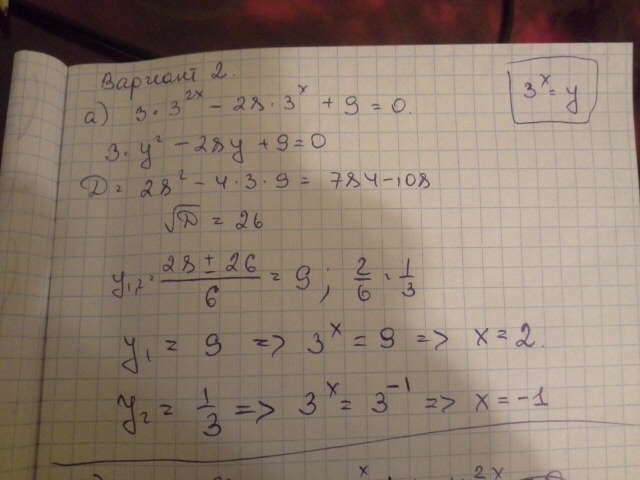 Вариант 2.
а) 3 · 3^{2x} - 28 · 3^x + 9 = 0.
3^x = y
3 · y² - 28y + 9 = 0
D = 28² - 4 · 3 · 9 = 784 - 108
√D = 26
y₁,₂ = (28 ± 26)/6 = 9 ; 2/6 = 1/3
y₁ = 9 => 3^x = 9 => x = 2.
y₂ = 1/3 => 3^x = 3^{-1} => x = -1